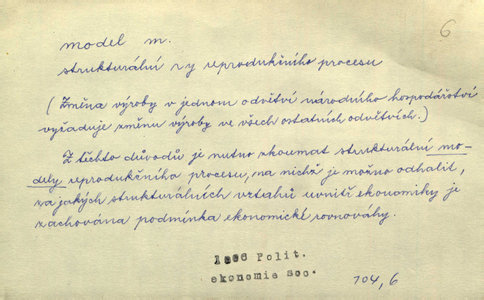 6
model m.
strukturální ~ y reprodukčního procesu
(Změna výroby v jednom odvětví národního hospodářství
vyžaduje změnu výroby ve všech ostatních odvětvích.)
Z těchto důvodů je nutno zkoumat strukturální mo-
dely reprodukčního procesu, na nichž je možno odhalit,
za jakých strukturálních vztahů uvnitř ekonomiky je
zachována podmínka ekonomické rovnováhy.
Polit.
ekonomie soc.
104,6